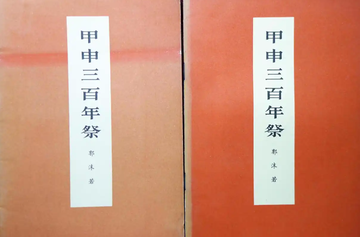 甲申三百年祭
郭沫若
甲申三百年祭
郭沫若